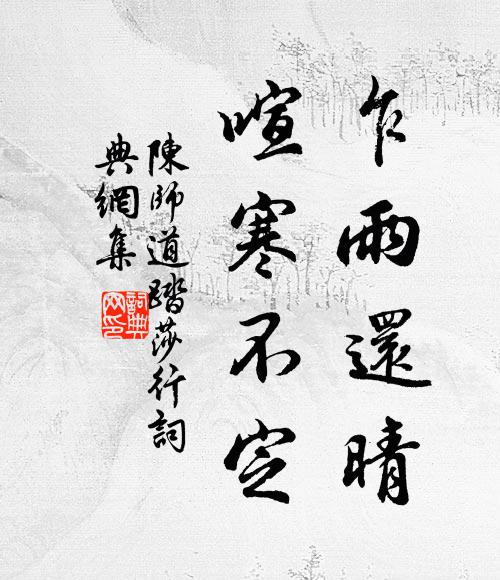 乍雨還晴
喧寒不定
陳師道踏莎行詞
典網集
詞典
网印